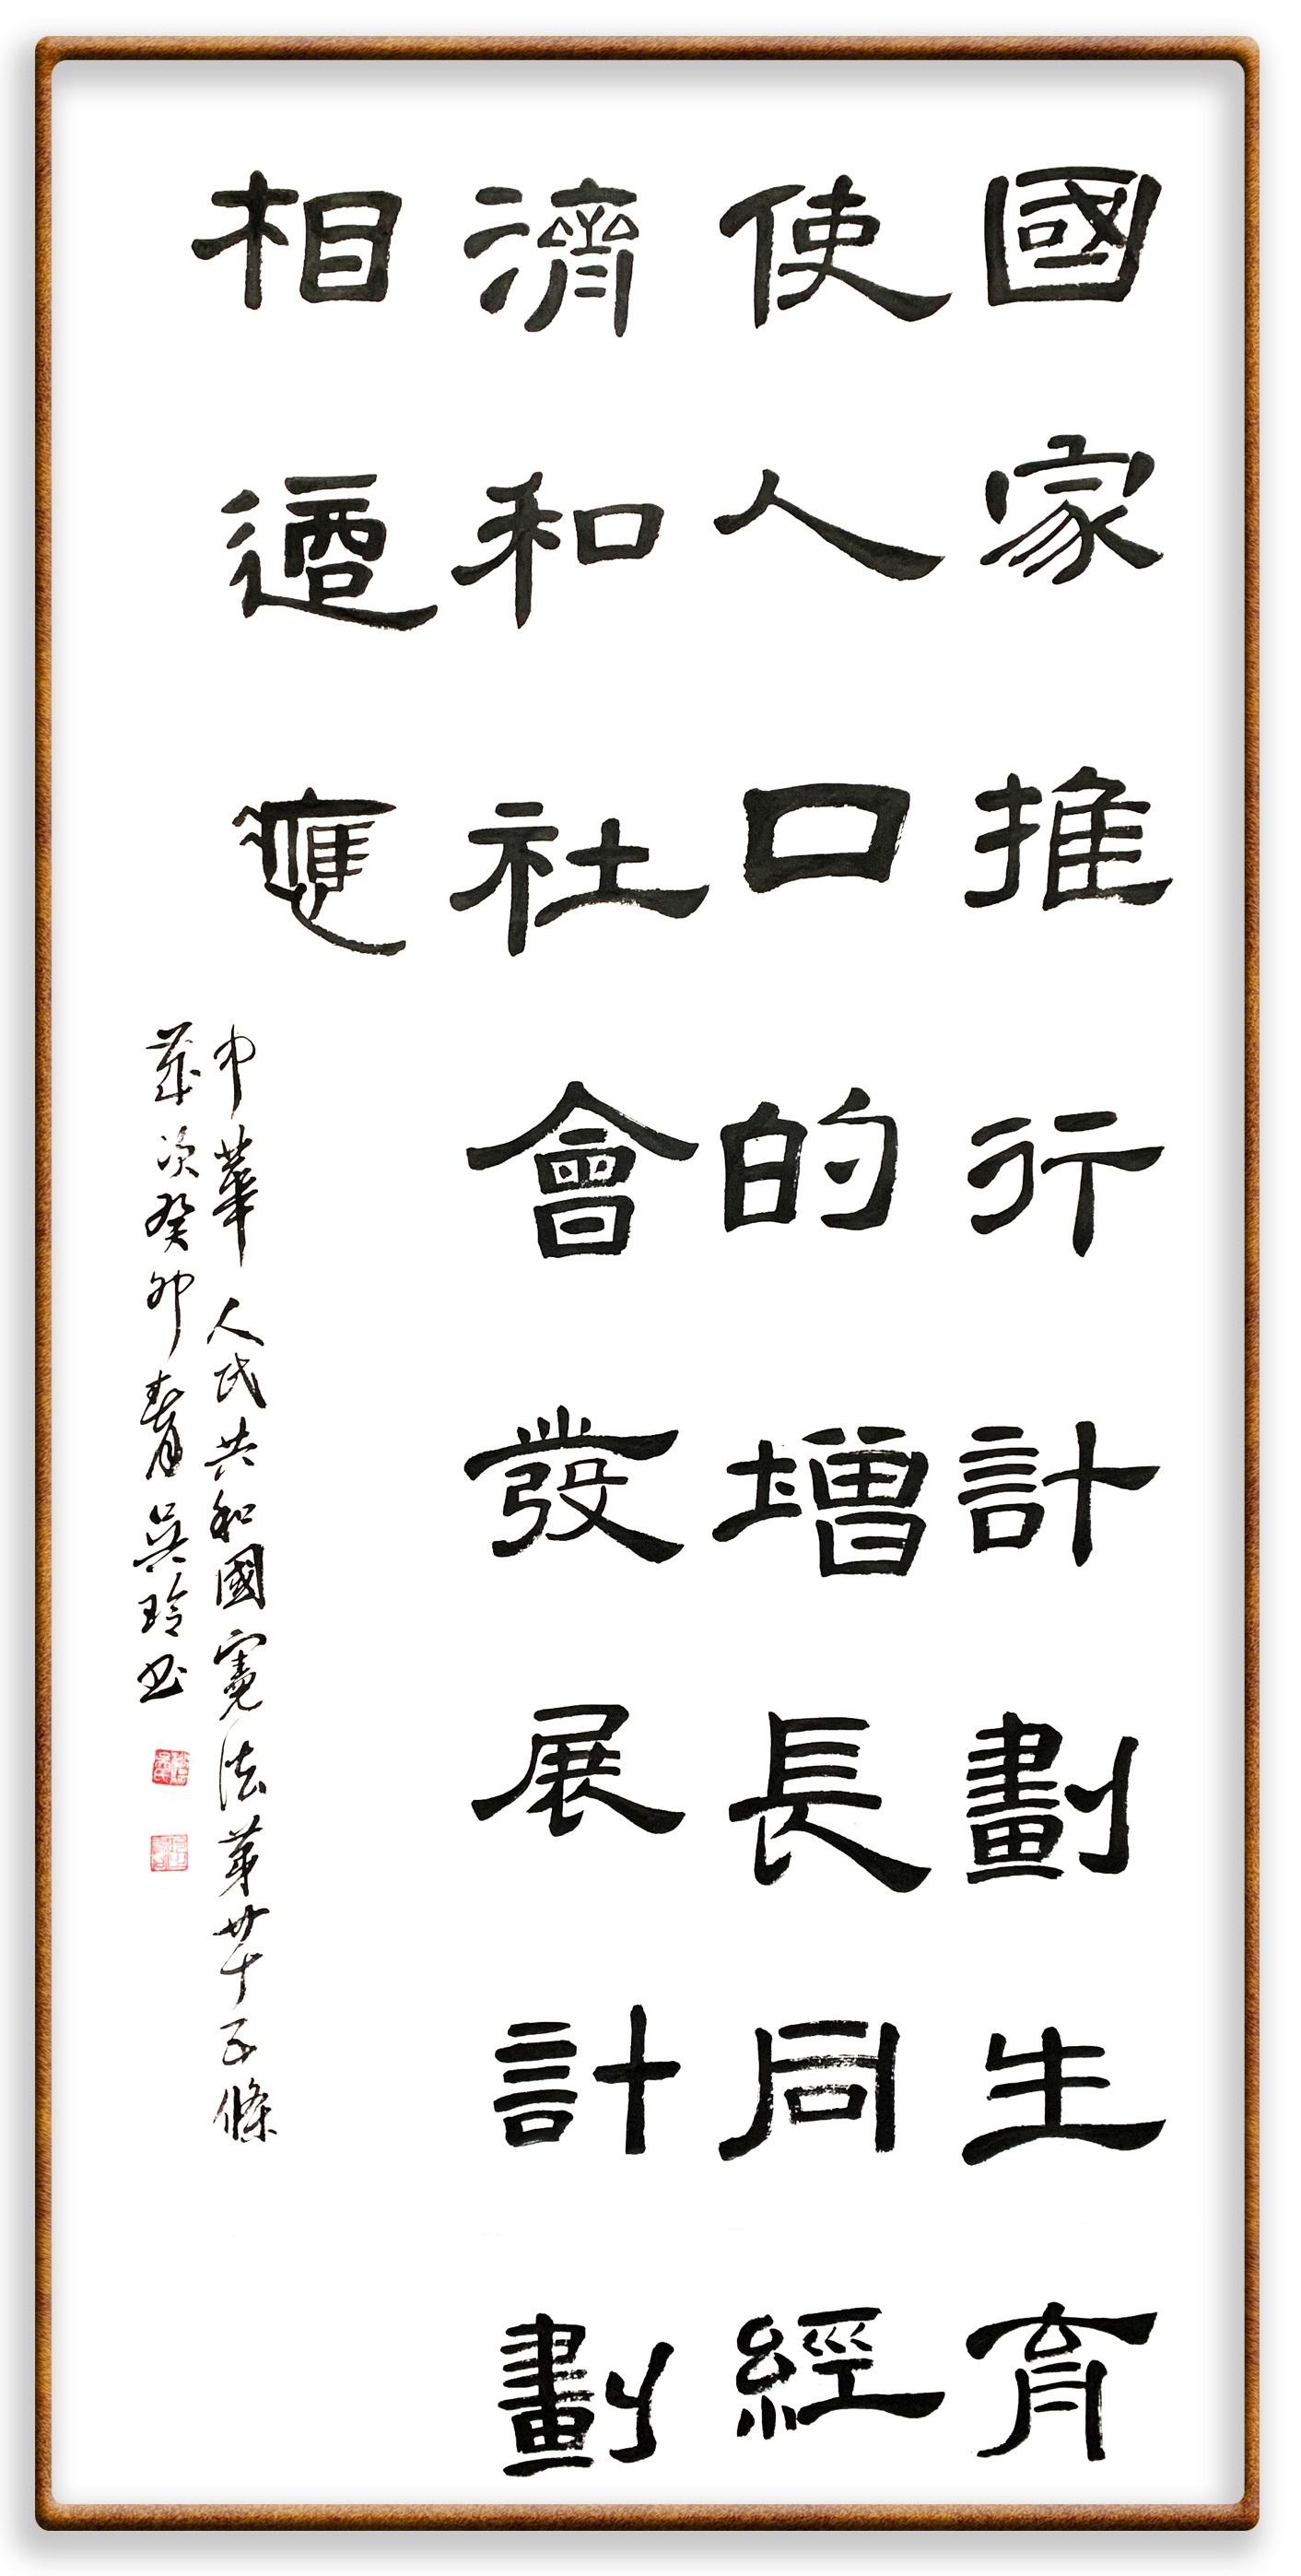 國家推行計劃生育
使人口的增長同經
濟和社會發展計劃
相適應
中華人民共和國憲法第廿十五條
歲次癸卯春月吳玲书